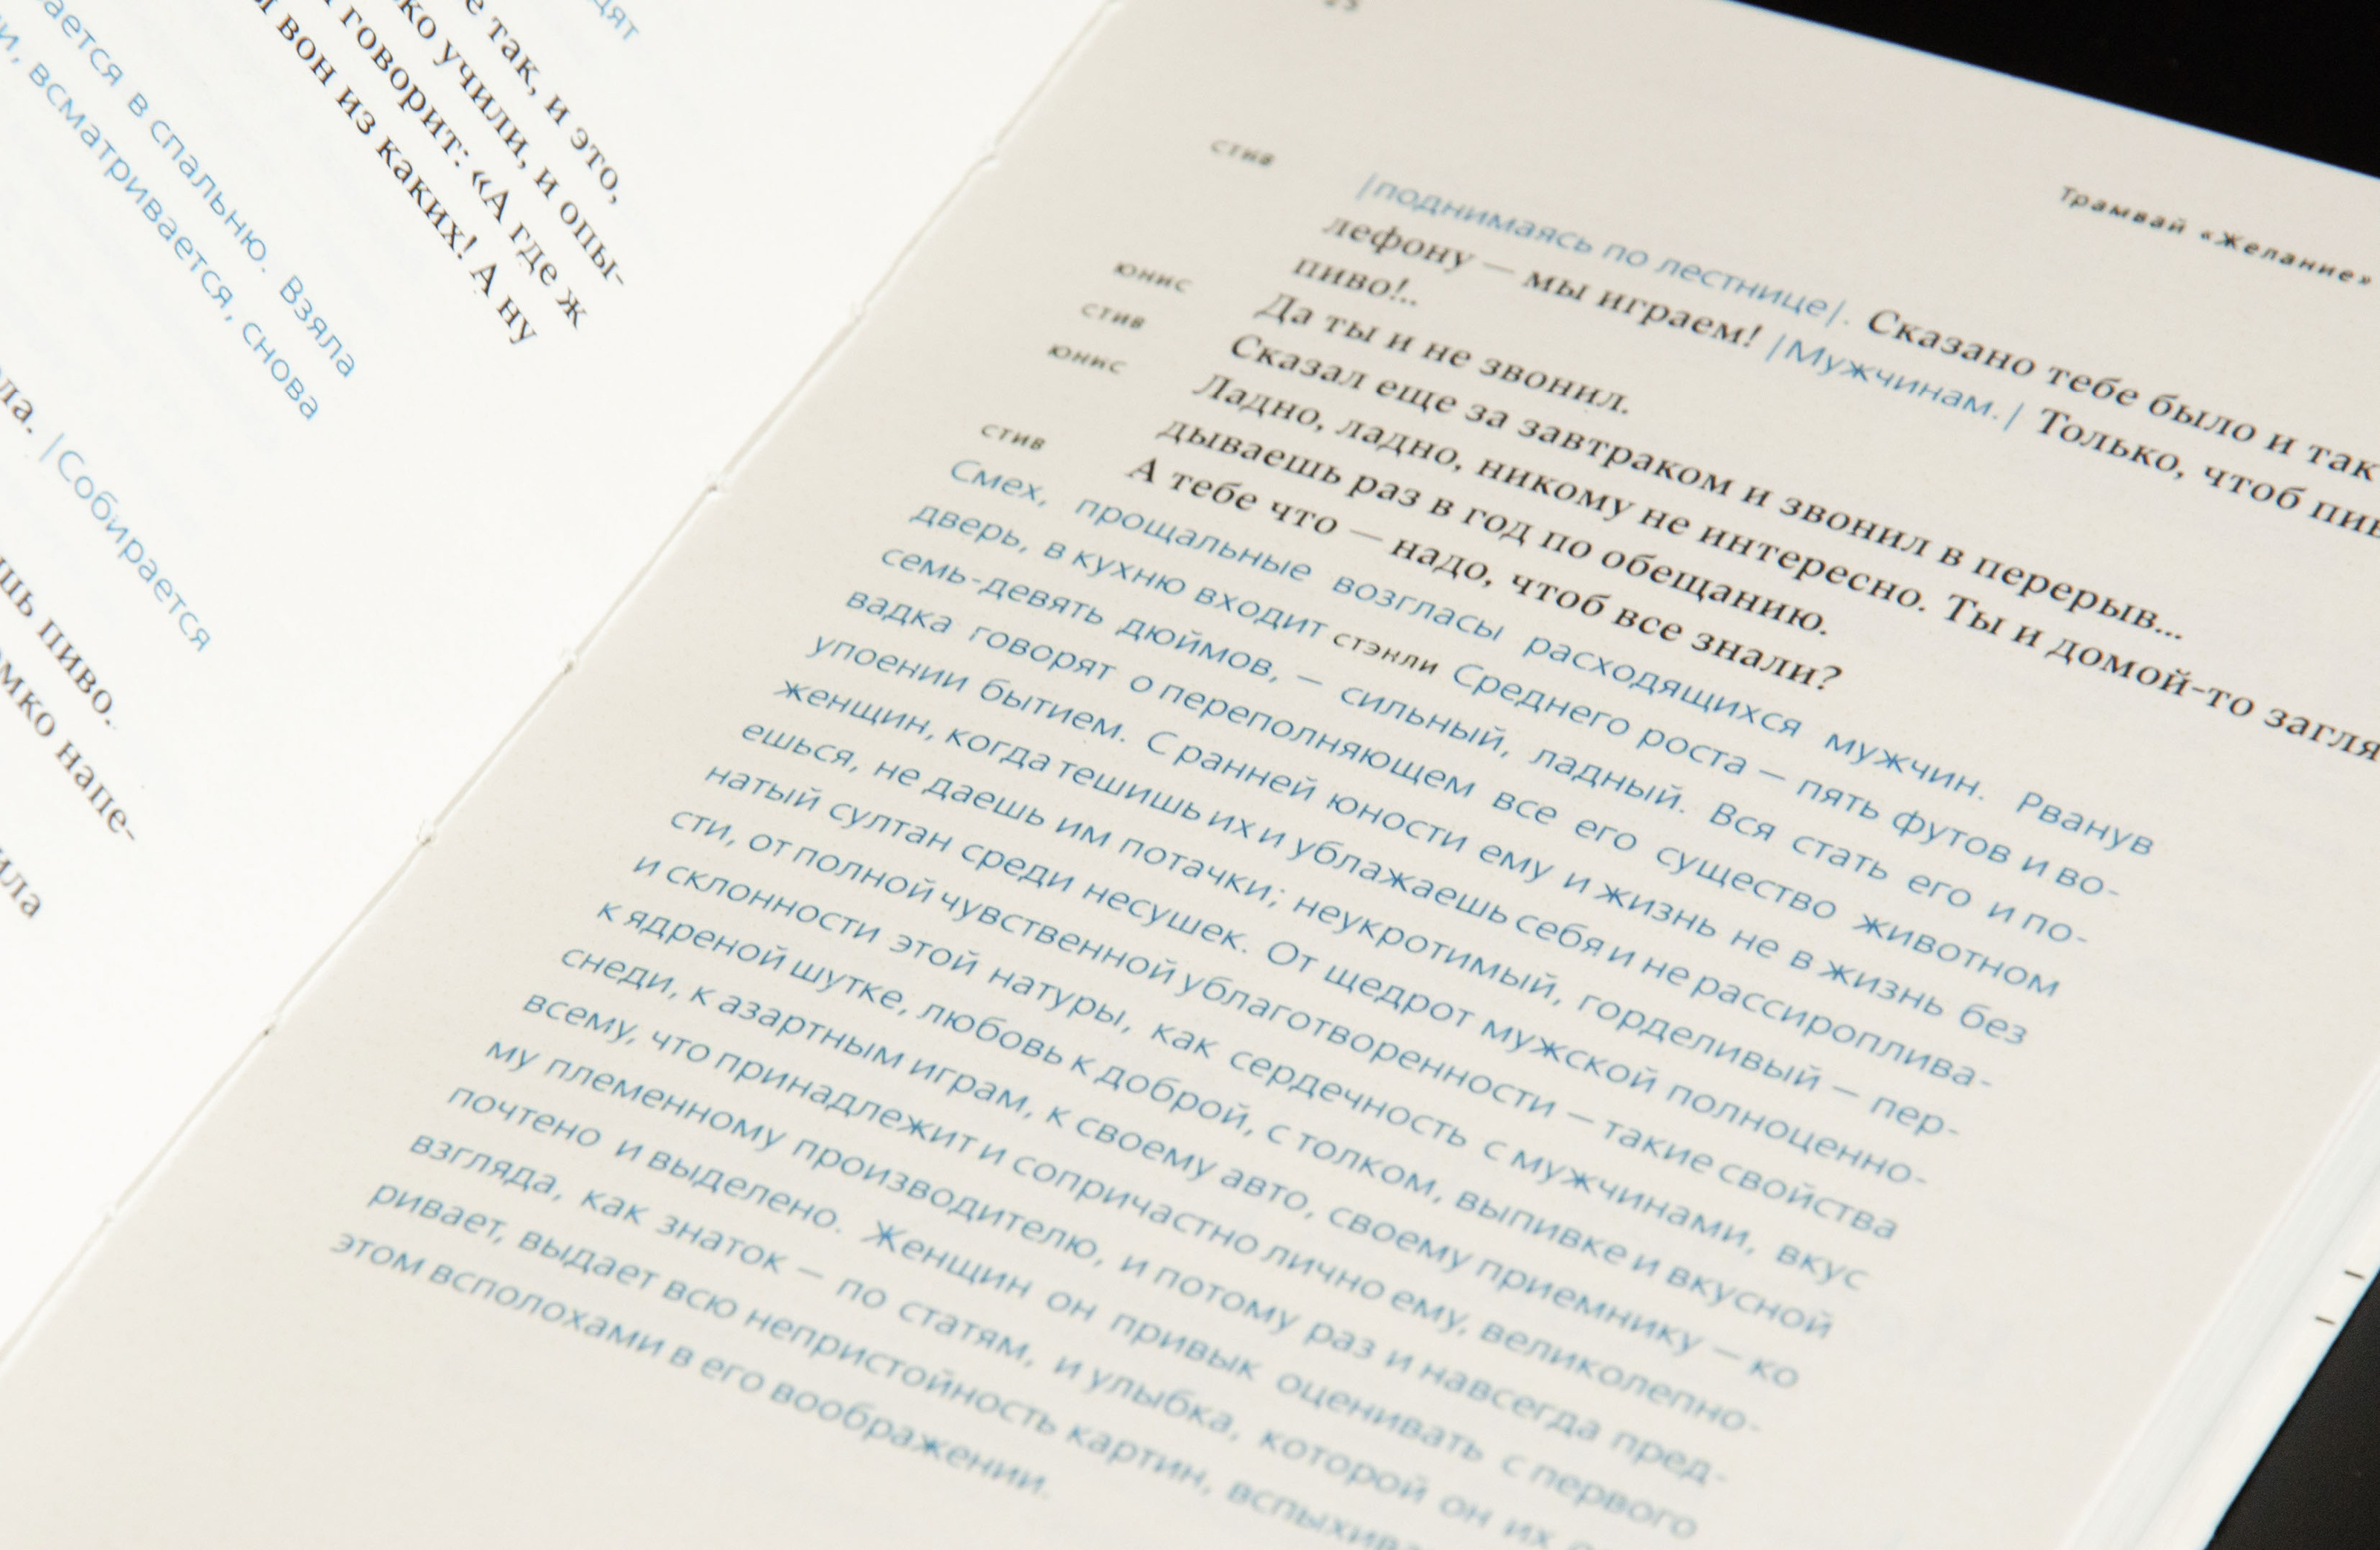 дят
так, и это,
учили, и опы-
говорит: «А где ж
вон из каких! А ну
ается в спальню. Взяла
и, всматривается, снова
ла. |Собирается
шь пиво.
мко напе-
ила
Трамвай «Желание»
СТИВ |поднимаясь по лестнице|. Сказано тебе было и так
лефону — мы играем! |Мужчинам.| Только, чтоб
пиво!..
ЮНИС Да ты и не звонил.
СТИВ Сказал еще за завтраком и звонил в перерыв...
ЮНИС Ладно, ладно, никому не интересно. Ты и домой-то загля
дываешь раз в год по обещанию.
СТИВ А тебе что — надо, чтоб все знали?
Смех, прощальные возгласы расходящихся мужчин. Рванув
дверь, в кухню входит СТЭНЛИ Среднего роста — пять футов и во-
семь-девять дюймов, — сильный, ладный. Вся стать его и по-
вадка говорят о переполняющем все его существо животном
упоении бытием. С ранней юности ему и жизнь не в жизнь без
женщин, когда тешишь их и ублажаешь себя и не рассироплива-
ешься, не даешь им потачки; неукротимый, горделивый — пер-
натый султан среди несушек. От щедрот мужской полноценно-
сти, от полной чувственной ублаготворенности — такие свойства
и склонности этой натуры, как сердечность с мужчинами, вкус
к ядреной шутке, любовь к доброй, с толком, выпивке и вкусной
снеди, к азартным играм, к своему авто, своему приемнику — ко
всему, что принадлежит и сопричастно лично ему, великолепно-
му племенному производителю, и потому раз и навсегда пред-
почтено и выделено. Женщин он привык оценивать с первого
взгляда, как знаток — по статям, и улыбка, которой он их
ривает, выдает всю непристойность картин, вспыхива
этом всполохами в его воображении.